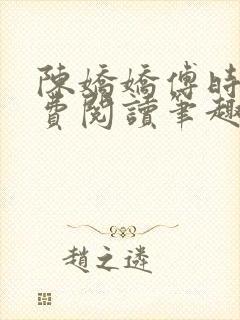 陳嬌嬌傅時
費閱讀筆趣
趙之遴